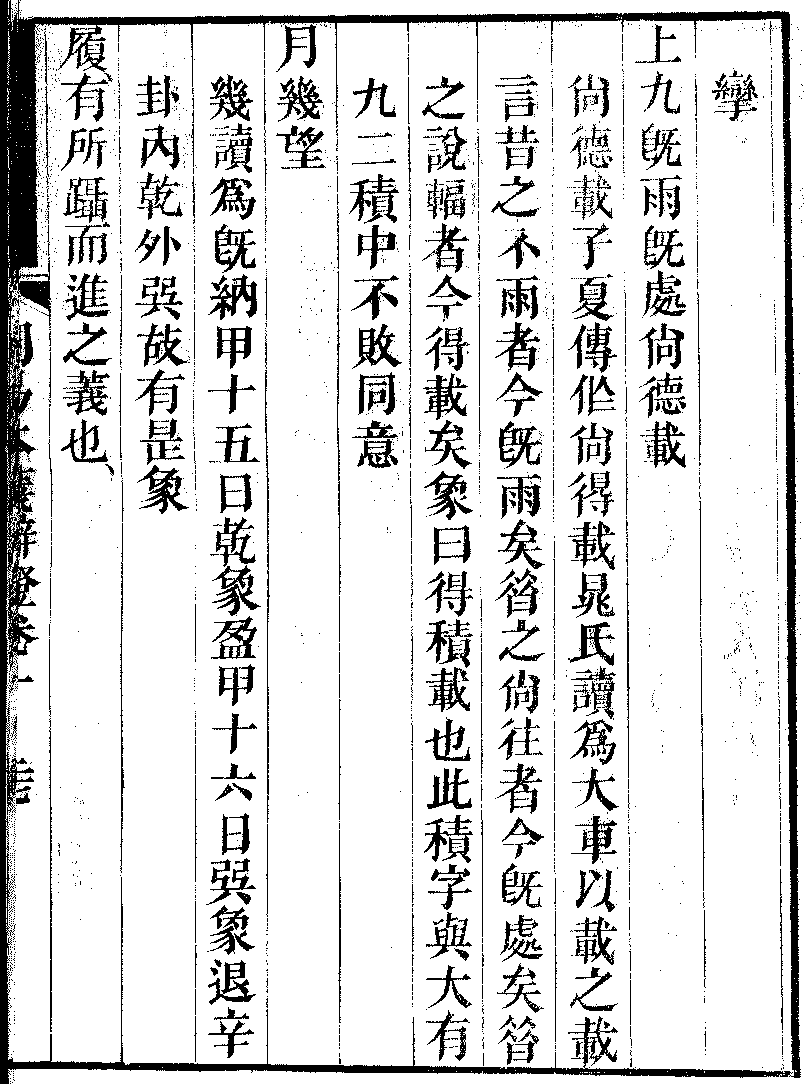 攣
上九旣雨旣處尙德載
尙德載子夏傳作尙得載晁氏讀爲大車以載之載
言昔之不雨者今旣雨矣昝之尙往者今旣處矣昝
之說輻者今得載矣象曰得積載也此積字與大有
九二積中不敗同意
月幾望
幾讀爲旣納甲十五日乾象盈甲十六日巽象退辛
卦內乾外巽故有是象
履、有所躡而進之義也、